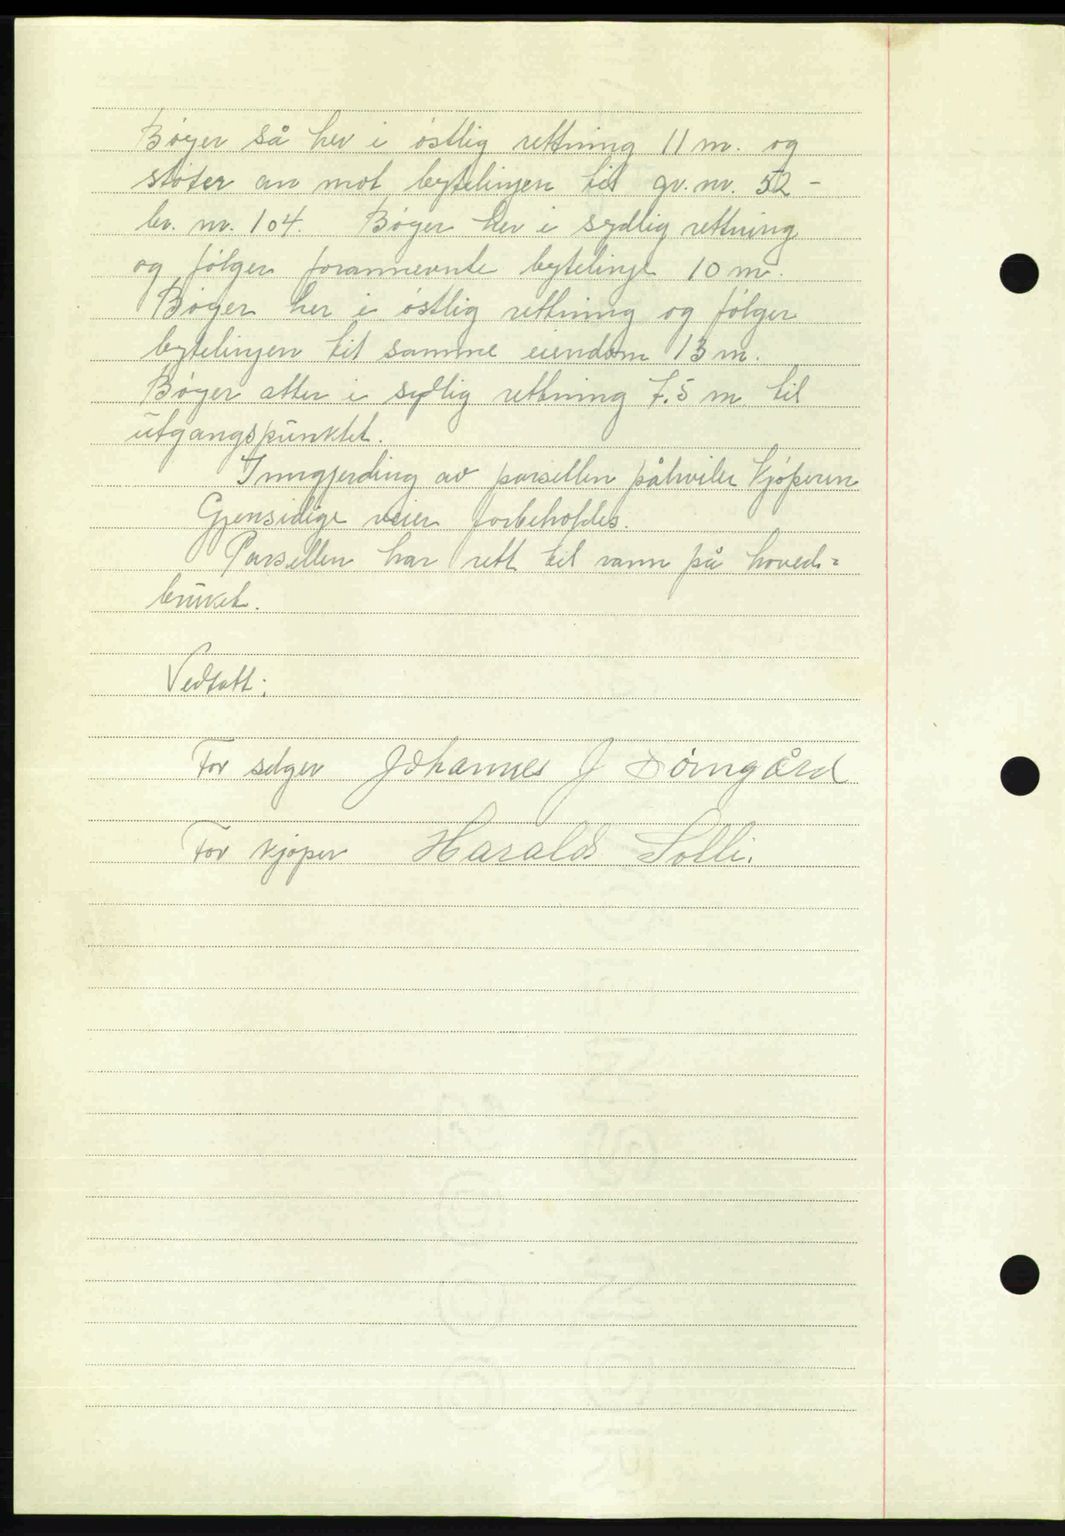 Bøyer så her i østlig rettning 11 m. og
støter an mot bytelinjen til gr. nr. 52 -
br. nr. 104. Bøyer her i sydlig rettning
og følger forannevnte bytelinje 10 m.
Bøyer her i østlig rettning og følger
bytelinjen til samme eiendom 13 m.
Bøyer atter i sydlig rettning 7.5 m til
utgangspunktet.
Inngjerding av parsellen påhviler kjøperen
Gjensidige veier forbeholdes.
Parsellen har rett til vann på hoved=
bruket.
Vedtatt:
For selger Johannes J Dömgård
For kjøper Harald Solli.